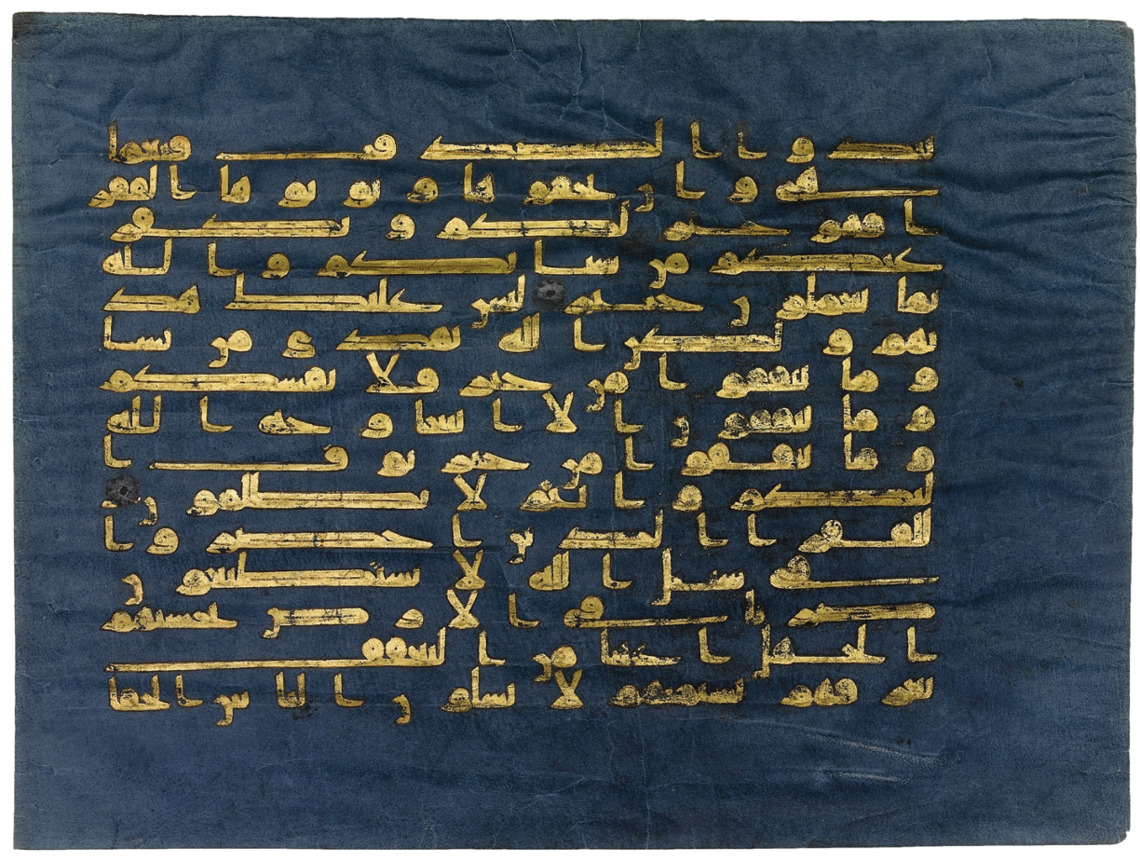 تبدوا الصدقت فنعما
هى وان تخفوها وتوتوها الفقر
ا فهو خير لكم ويكفر
عنكم من سياتكم والله
بما تعملون خبير ليس عليك هد
يهم ولكن الله يهدى من يشا
وما تنفقوا من خير فلانفسكم
وما تنفقون الا ابتغا وجه الله
وما تنفقوا من خير يوف ا
ليكم وانتم لا تظلمون
للفقرا الذين احصروا
فى سبيل الله لا يستطيعون
ضربا فى الارض يحسبهم
الجهل اغنيا من التعفف
تعرفهم بسيمهم لا يسلون الناس الحافا